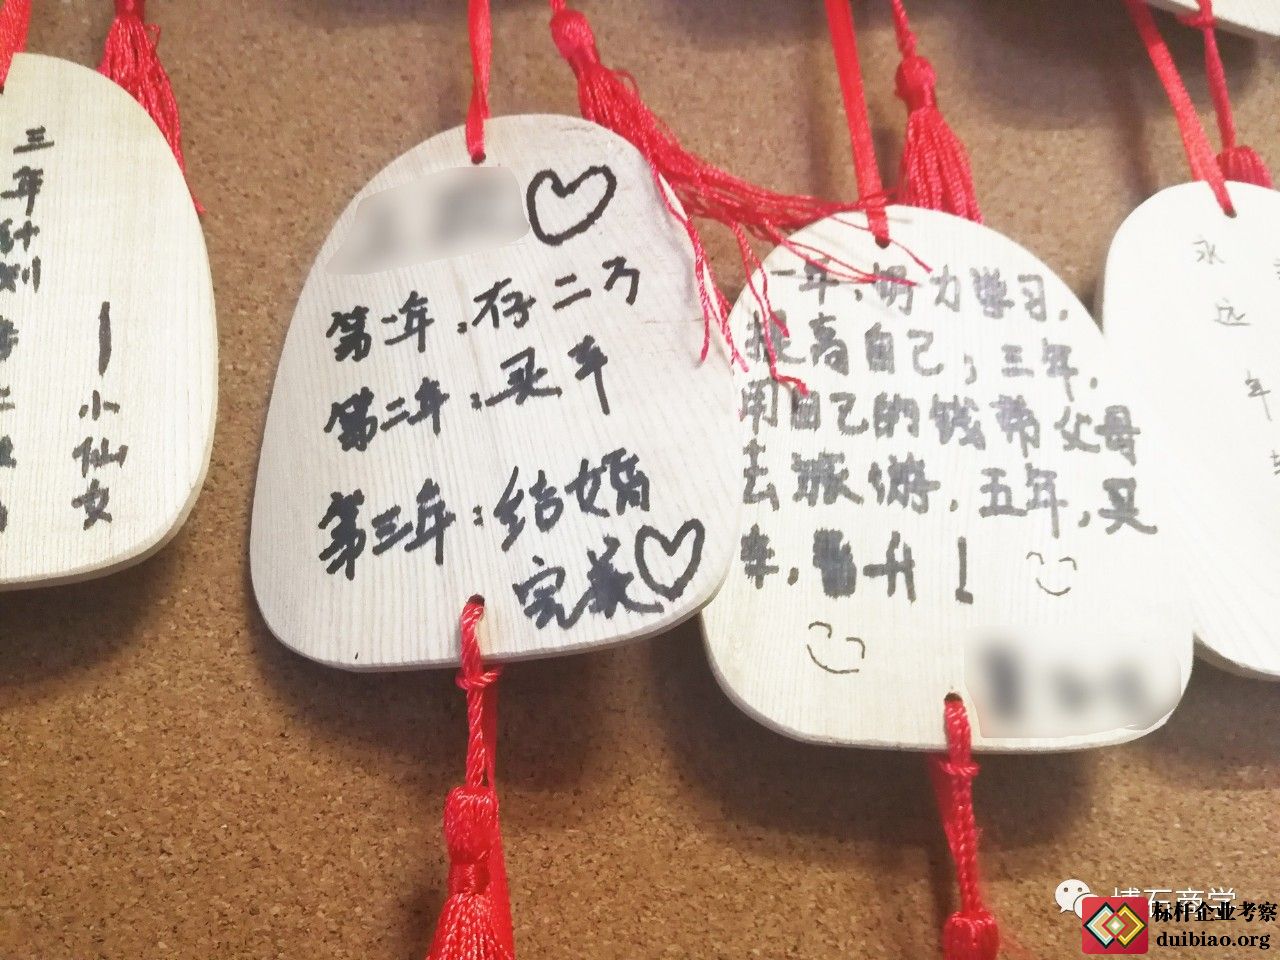 三年计划
一小仙女
第一年：存二万
第二年：买车
第三年：结婚
完美
一年，明力学习，
提高自己；三年，
用自己的钱带父母
去旅游，五年，买
车，晋升！
永远年
博石商学
标杆企业考察
duibiao.org